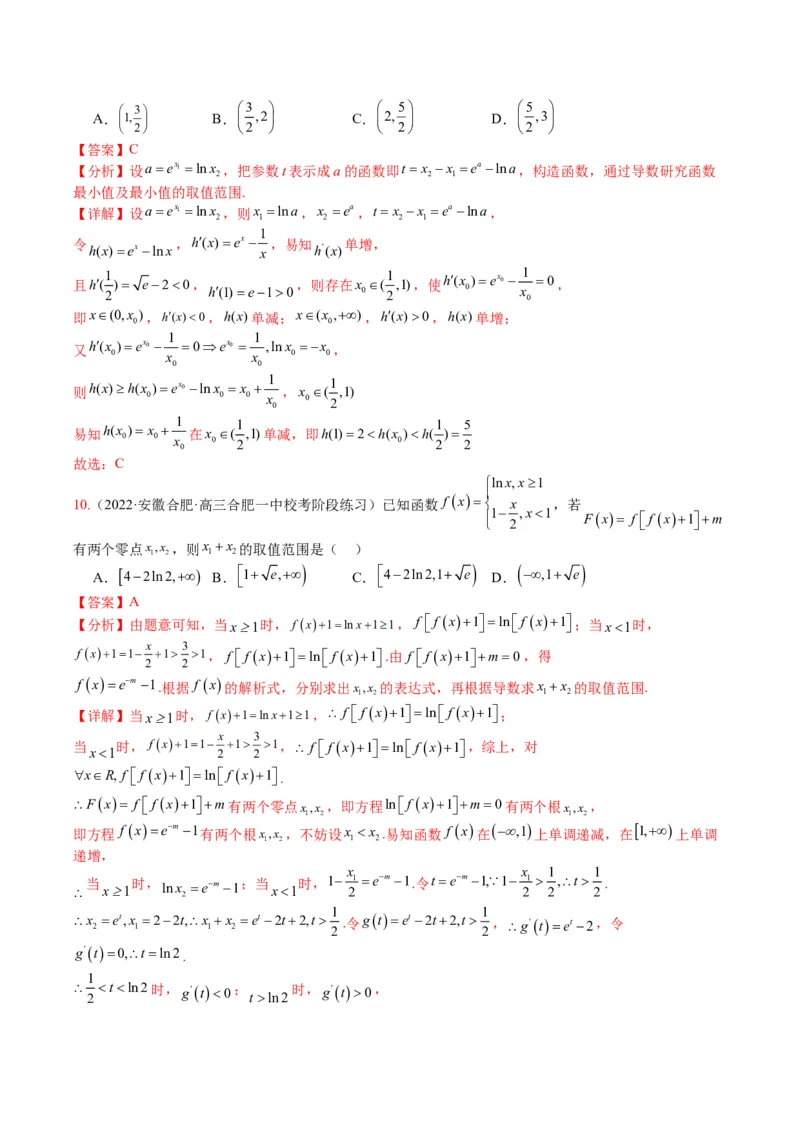 A. (1, 3/2) B. (3/2, 2) C. (2, 5/2) D. (5/2, 3)
【答案】C
【分析】设a=e^{x₁}=lnx₂，把参数t表示成a的函数即t=x₂−x₁=e^a−lna，构造函数，通过导数研究函数
最小值及最小值的取值范围.
【详解】设a=e^{x₁}=lnx₂，则x₁=lna，x₂=e^a，t=x₂−x₁=e^a−lna，
令h(x)=e^x−lnx，h′(x)=e^x−1/x，易知h′(x)单增，
且h′(1/2)=√e−2<0，h′(1)=e−1>0，则存在x₀∈(1/2,1)，使h′(x₀)=e^{x₀}−1/x₀=0，
即x∈(0,x₀)，h′(x)<0，h(x)单减；x∈(x₀,+∞)，h′(x)>0，h(x)单增；
又h′(x₀)=e^{x₀}−1/x₀=0⇒e^{x₀}=1/x₀,lnx₀=−x₀，
则h(x)≥h(x₀)=e^{x₀}−lnx₀=x₀+1/x₀，x₀∈(1/2,1)
易知h(x₀)=x₀+1/x₀在x₀∈(1/2,1)单减，即h(1)=2<h(x₀)<h(1/2)=5/2
故选：C
10.（2022·安徽合肥·高三合肥一中校考阶段练习）已知函数f(x)={lnx,x≥1; 1−x/2,x<1，若F(x)=f[f(x)+1]+m
有两个零点x₁,x₂，则x₁+x₂的取值范围是（ ）
A. [4−2ln2,+∞) B. [1+√e,+∞) C. [4−2ln2,1+√e) D. (−∞,1+√e)
【答案】A
【分析】由题意可知，当x≥1时，f(x)+1=lnx+1≥1，f[f(x)+1]=ln[f(x)+1]；当x<1时，
f(x)+1=1−x/2+1>3/2>1，f[f(x)+1]=ln[f(x)+1].由f[f(x)+1]+m=0，得
f(x)=e^{−m}−1.根据f(x)的解析式，分别求出x₁,x₂的表达式，再根据导数求x₁+x₂的取值范围.
【详解】当x≥1时，f(x)+1=lnx+1≥1，∴f[f(x)+1]=ln[f(x)+1]；
当x<1时，f(x)+1=1−x/2+1>3/2>1，∴f[f(x)+1]=ln[f(x)+1]，综上，对
∀x∈R,f[f(x)+1]=ln[f(x)+1].
∴F(x)=f[f(x)+1]+m有两个零点x₁,x₂，即方程ln[f(x)+1]+m=0有两个根x₁,x₂，
即方程f(x)=e^{−m}−1有两个根x₁,x₂，不妨设x₁<x₂.易知函数f(x)在(−∞,1)上单调递减，在[1,+∞)上单调
递增，
∴当x≥1时，lnx₂=e^{−m}−1；当x<1时，1−x₁/2=e^{−m}−1.令t=e^{−m}−1,∵1−x₁/2>1/2,∴t>1/2.
∴x₂=e^t,x₁=2−2t,∴x₁+x₂=e^t−2t+2,t>1/2.令g(t)=e^t−2t+2,t>1/2，∴g′(t)=e^t−2，令
g′(t)=0,∴t=ln2.
∴1/2<t<ln2时，g′(t)<0；t>ln2时，g′(t)>0，